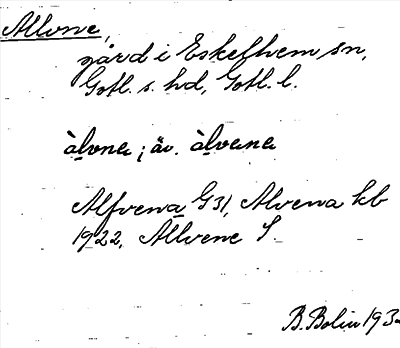 Allvne,
gård i Eskelhem sn,
Gotl. s. hd, Gotl. l.
àlvne ; äv. àlvene
Alfvena G31, Alvena kb
1922, Allvene S.
B. Bolin 193